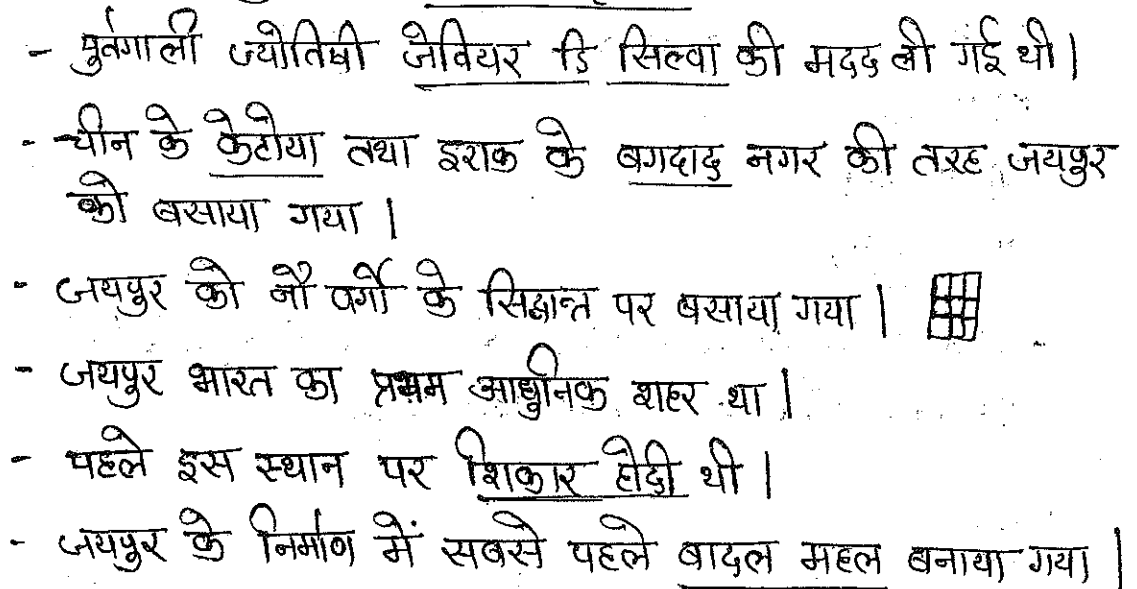 - पुर्तगाली ज्योतिषी जेवियर डि सिल्वा की मदद ली गई थी।
- चीन के केटोया तथा इराक के बगदाद नगर की तरह जयपुर
को बसाया गया ।
- जयपुर को नौ वर्गो के सिद्धान्त पर बसाया गया ।
- जयपुर भारत का प्रथम आधुनिक शहर था ।
- पहले इस स्थान पर शिकार होदी थी ।
- जयपुर के निर्माण में सबसे पहले बादल महल बनाया गया ।